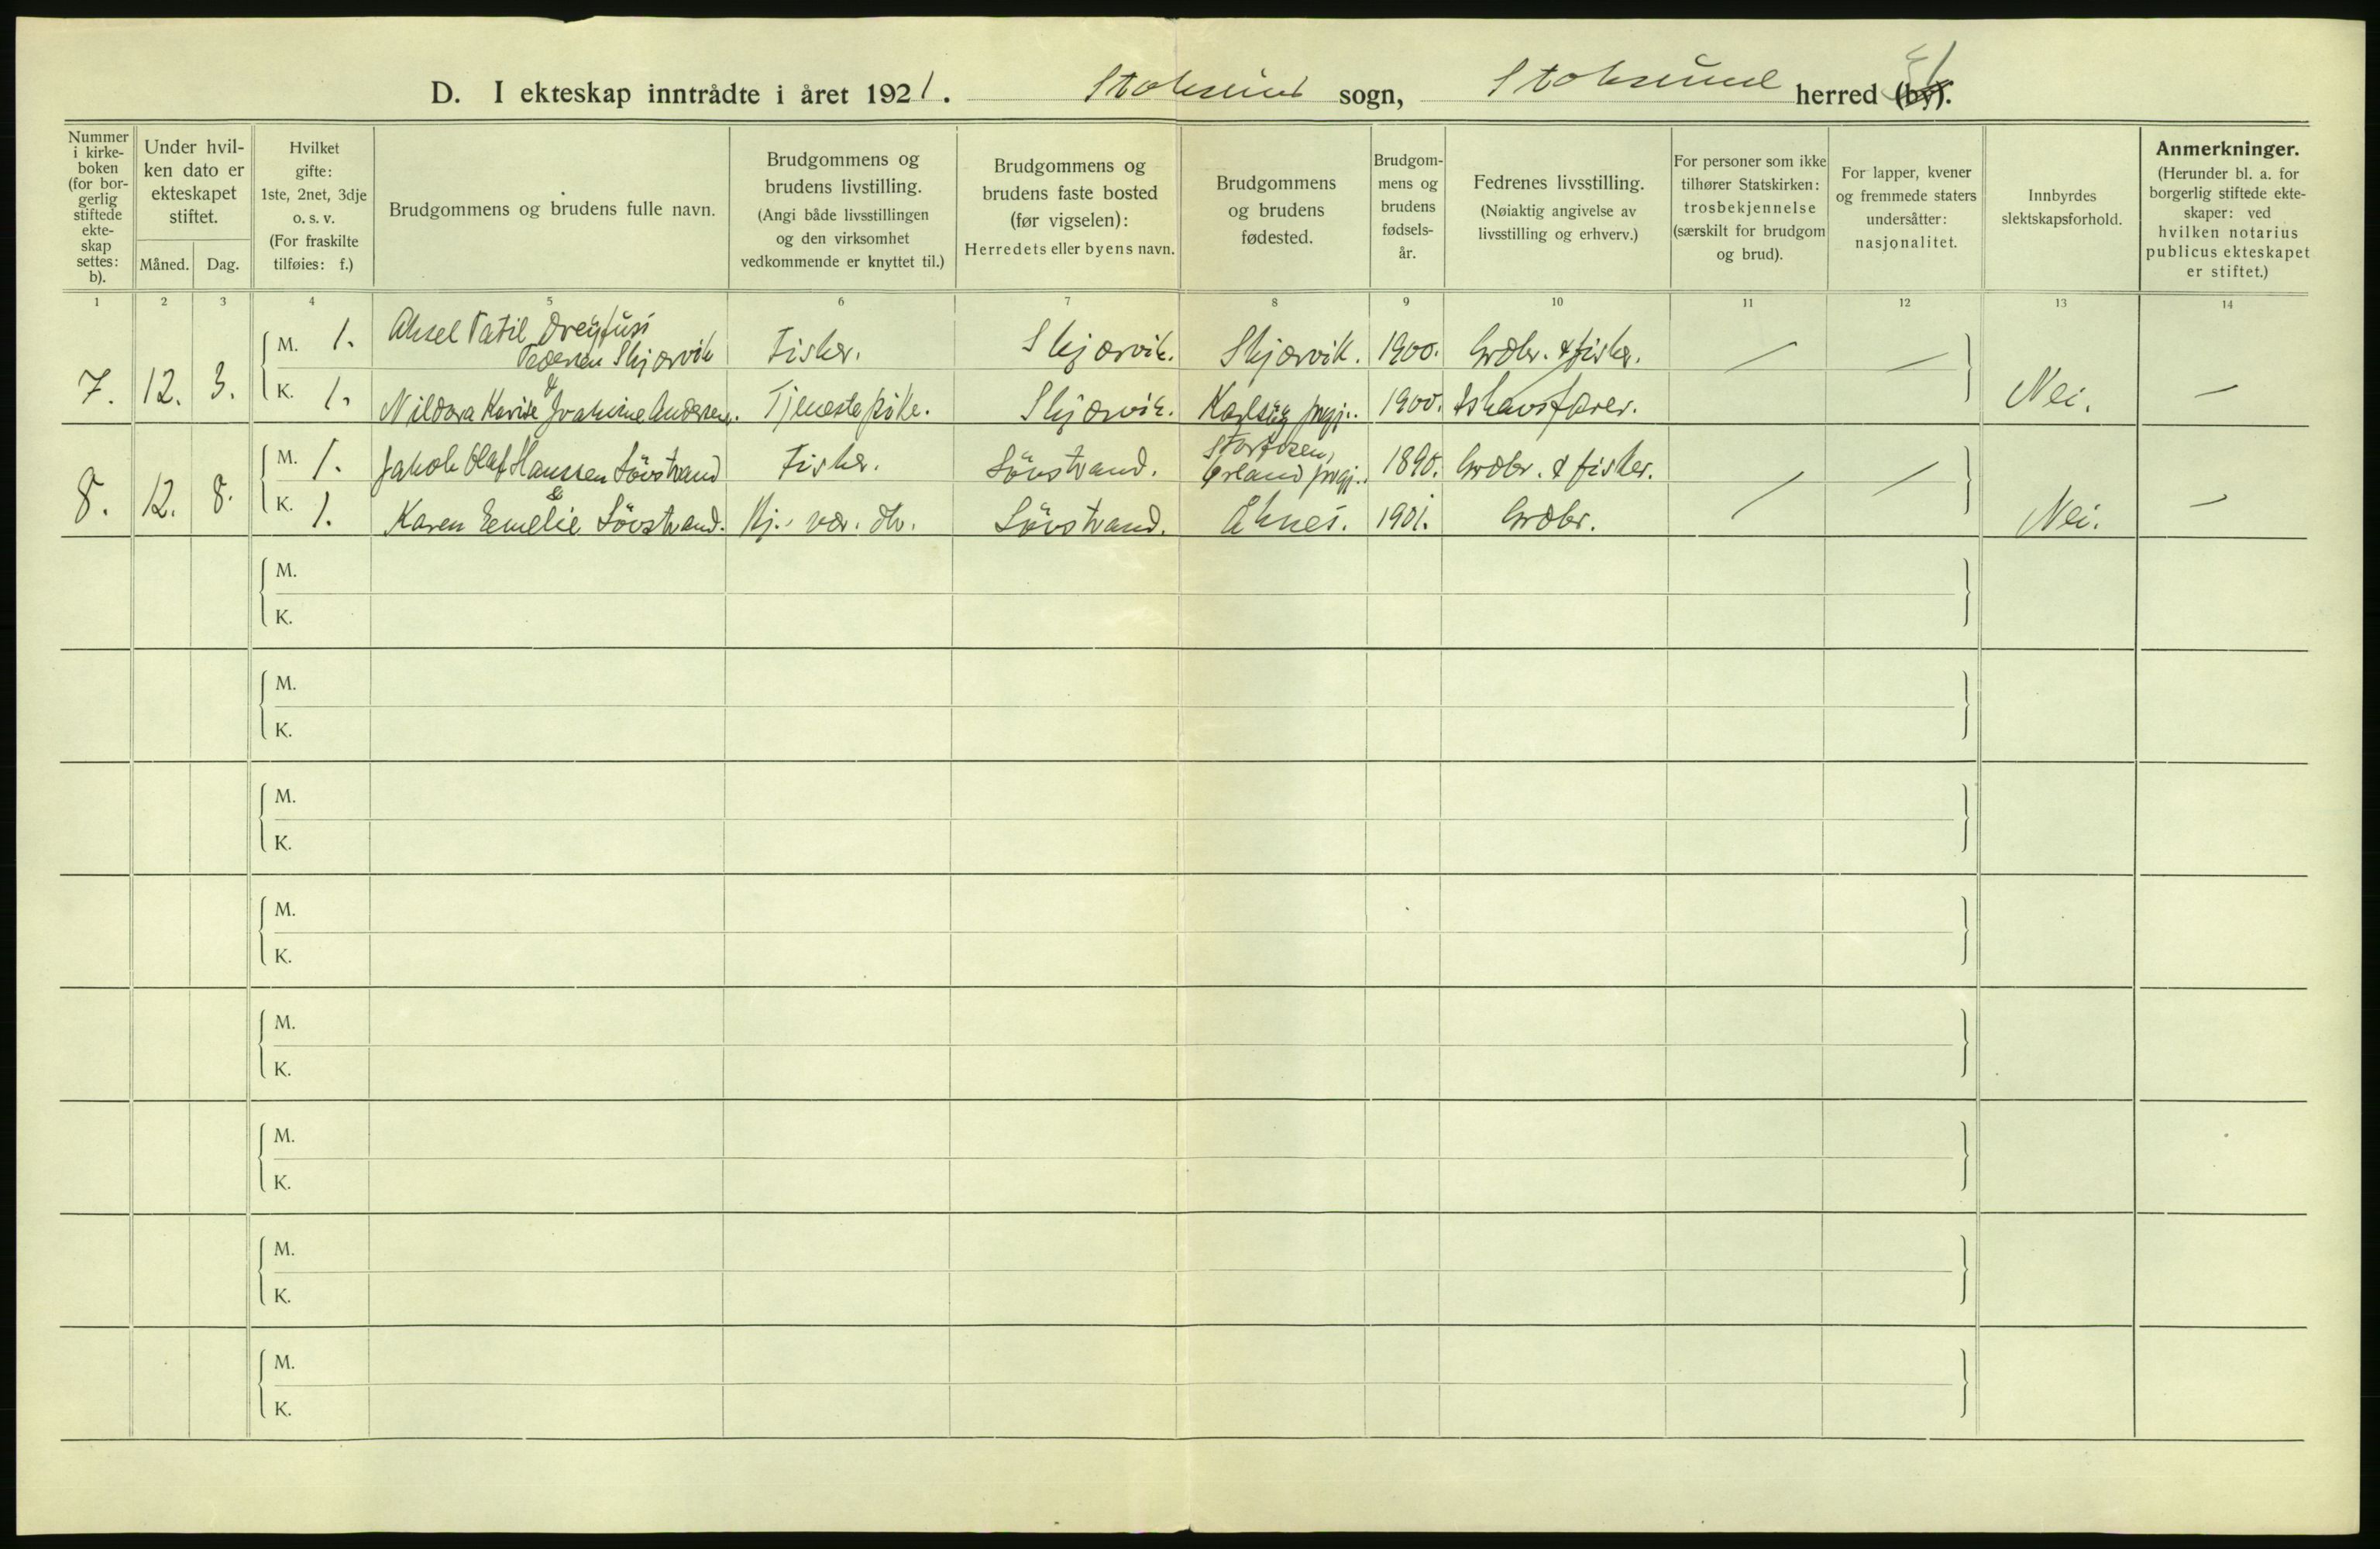 D. I ekteskap inntrådte i året 1921. Stoksund sogn, Stoksund herred (by).
Nummer i kirke-boken (for bor-gerlig stiftede ekte-skap settes: b).
Under hvil-ken dato er ekteskapet stiftet.
Måned. Dag.
Hvilket gifte: 1ste, 2net, 3dje o. s. v. (For fraskilte tilføies: f.)
Brudgommens og brudens fulle navn.
Brudgommens og brudens livstilling. (Angi både livsstillingen og den virksomhet vedkommende er knyttet til.)
Brudgommens og brudens faste bosted (før vigselen): Herredets eller byens navn.
Brudgommens og brudens fødested.
Brudgom-mens og brudens fødsels-år.
Fedrenes livsstilling. (Nøiaktig angivelse av livsstilling og erhverv.)
For personer som ikke tilhører Statskirken: trosbekjennelse (særskilt for brudgom og brud).
For lapper, kvener og fremmede staters undersåtter: nasjonalitet.
Innbyrdes slektskapsforhold.
Anmerkninger. (Herunder bl. a. for borgerlig stiftede ekte-skaper: ved hvilken notarius publicus ekteskapet er stiftet.)
1 2 3 4 5 6 7 8 9 10 11 12 13 14
7. 12. 3. M. 1. Aksel Dreyfuss
Pedersen Skjærvik Fisker. Skjærvik. Skjærvik. 1900. Grdbr. & fisker. — —
&
K. 1. Joakime Andersen. Tjenestepike. Skjærvik. Karlsøy prgj. 1900. Ishavsfarer. Nei. —
8. 12. 8. M. 1. Jakob Olaf Hanssen Sövstrand Fisker. Sövstrand. Storfosen,
Ørland prgj. 1890. Grdbr. & fisker. — —
&
K. 1. Karen Emelie Sövstrand. Hj. vær. dtr. Sövstrand. Aknes. 1901. Grdbr. Nei. —
M.
K.
M.
K.
M.
K.
M.
K.
M.
K.
M.
K.
M.
K.
M.
K.